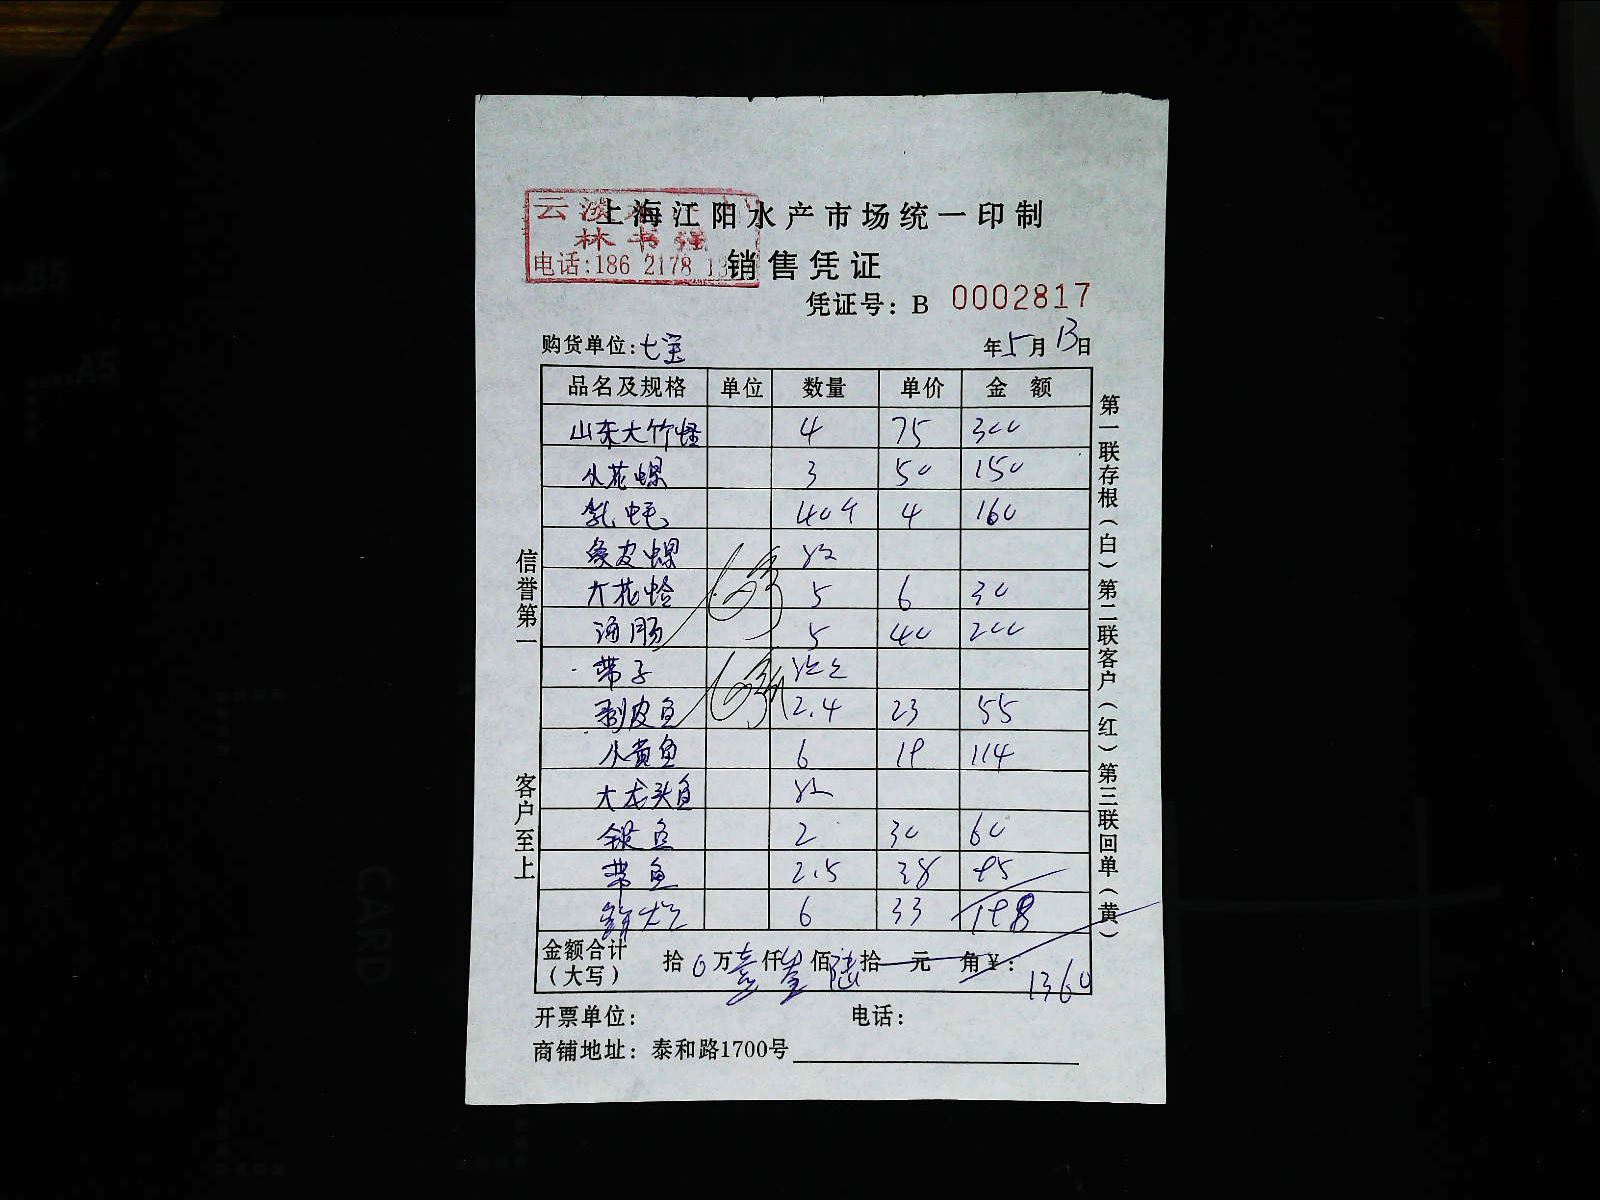 上海江阳水产市场统一印制
云
林书强
电话:186 2178 13
销售凭证
凭证号: B 0002817
购货单位: 七宝 年5月13日
品名及规格 单位 数量 单价 金额
山东大竹蛏 4 75 300
小花螺 3 50 150
乳蚝 40个 4 160
皮螺
大花蛤 5 6 30
海肠 5 40 200
带子
剥皮鱼 2.4 23 55
小黄鱼 6 19 114
大龙头鱼
银鱼 2 30 60
带鱼 2.5 38 95
6 33 198
金额合计(大写) 拾0万壹仟叁佰陆拾 元 角¥: 1360
开票单位: 电话:
商铺地址: 泰和路1700号
信誉第一 客户至上
第一联存根(白) 第二联客户(红) 第三联回单(黄)
A5
CARD